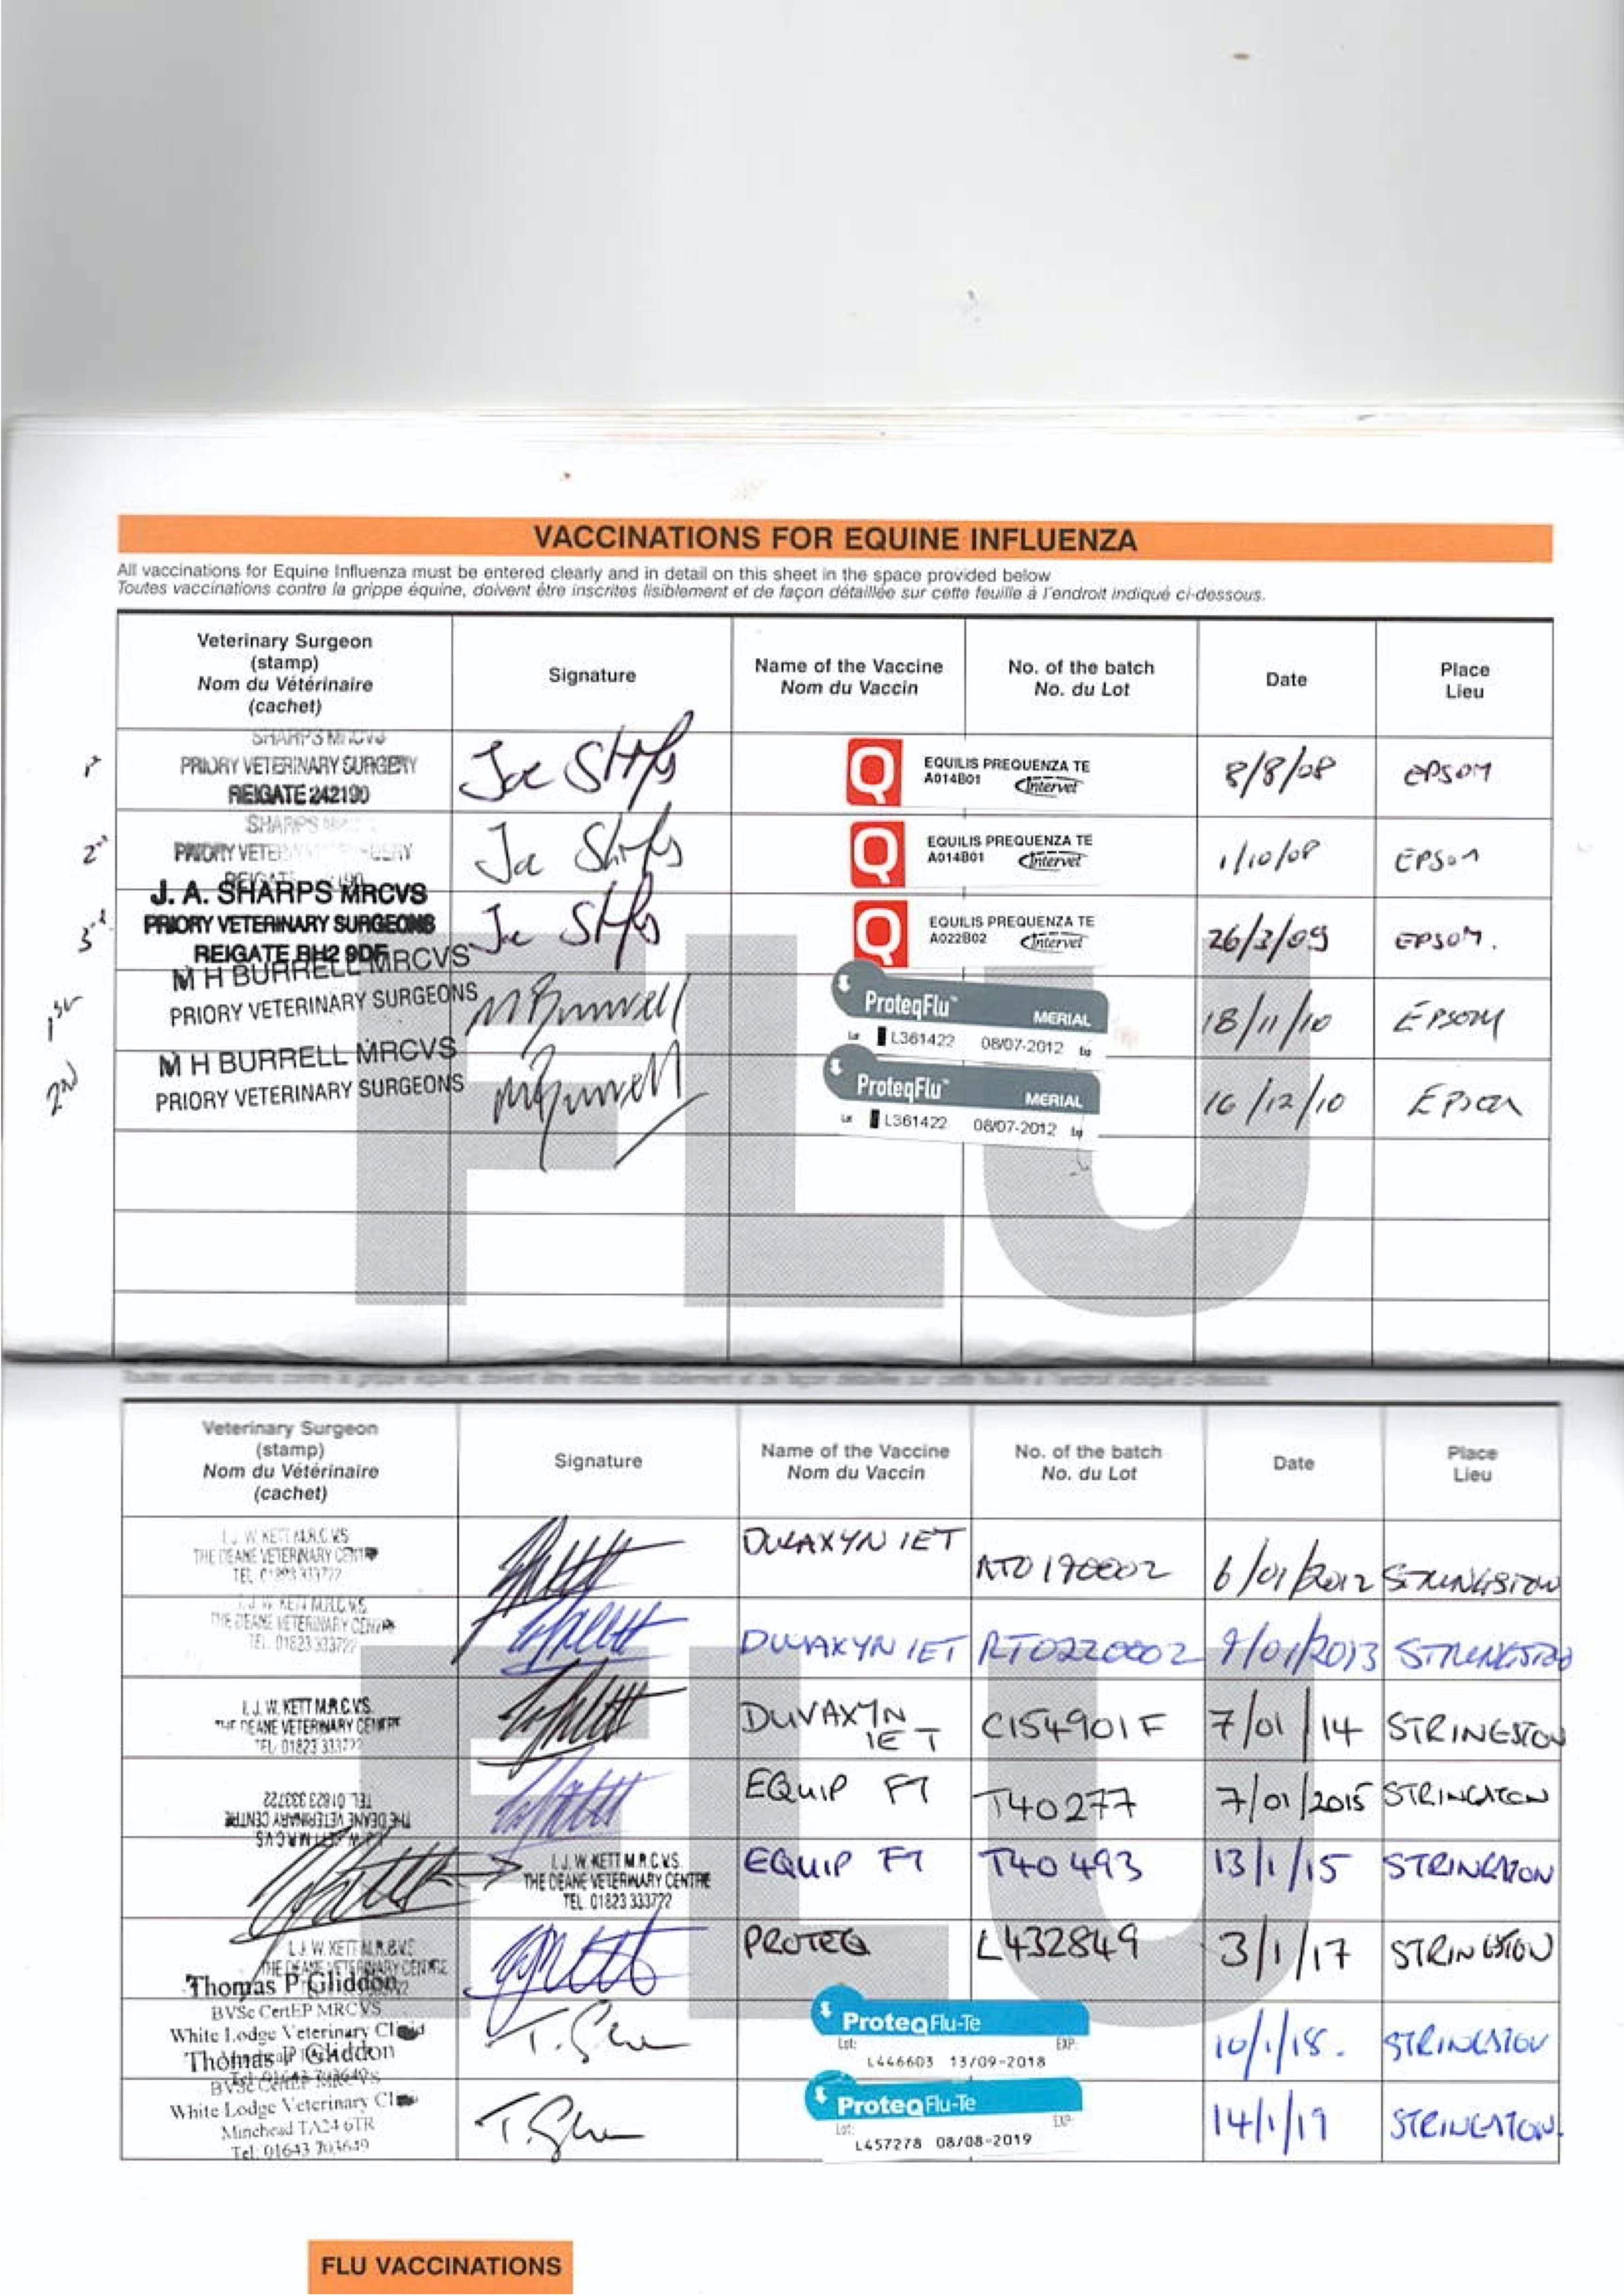 VACCINATIONS FOR EQUINE INFLUENZA
All vaccinations for Equine Influenza must be entered clearly and in detail on this sheet in the space provided below
Toutes vaccinations contre la grippe équine, doivent être inscrites lisiblement et de façon détaillée sur cette feuille à l'endroit indiqué ci-dessous.
Veterinary Surgeon
(stamp)
Nom du Vétérinaire
(cachet)
Signature
Name of the Vaccine
Nom du Vaccin
No. of the batch
No. du Lot
Date
Place
Lieu
SHARPS MRCVS
PRIORY VETERINARY SURGERY
REIGATE 242190
Joe Sharps
Q
EQUILIS PREQUENZA TE
A014B01 Intervet
8/8/08
EPSOM
SHARPS
PRIORY
REIGATE
Joe Sharps
Q
EQUILIS PREQUENZA TE
A014B01 Intervet
1/10/08
EPSOM
J. A. SHARPS MRCVS
PRIORY VETERINARY SURGEONS
REIGATE RH2 9DF
Joe Sharps
Q
EQUILIS PREQUENZA TE
A022B02 Intervet
26/3/09
EPSOM.
1st
M H BURRELL MRCVS
PRIORY VETERINARY SURGEONS
M Burrell
ProteqFlu™
MERIAL
Lot L361422 08/07-2012 Exp
18/11/10
EPSOM
2nd
M H BURRELL MRCVS
PRIORY VETERINARY SURGEONS
M Burrell
ProteqFlu™
MERIAL
Lot L361422 08/07-2012 Exp
16/12/10
EPSOM
FLU
Toutes vaccinations contre la grippe équine, doivent être inscrites lisiblement et de façon détaillée sur cette feuille à l'endroit indiqué ci-dessous.
Veterinary Surgeon
(stamp)
Nom du Vétérinaire
(cachet)
Signature
Name of the Vaccine
Nom du Vaccin
No. of the batch
No. du Lot
Date
Place
Lieu
I. J. W. KETT M.R.C.V.S
THE DEANE VETERINARY CENTRE
TEL 01823 333722
DUVAXYN IET
RTO190002
6/01/2012
STRINGSTON
I. J. W. KETT M.R.C.V.S
THE DEANE VETERINARY CENTRE
TEL. 01823 333722
DUVAXYN IET
RTO220002
9/01/2013
STRINGSTON
I. J. W. KETT M.R.C.V.S.
THE DEANE VETERINARY CENTRE
TEL 01823 333722
DUVAXYN
IET
C154901F
7/01/14
STRINGSTON
I. J. W. KETT M.R.C.V.S
THE DEANE VETERINARY CENTRE
TEL 01823 333722
EQUIP FT
T40277
7/01/2015
STRINGSTON
I. J. W. KETT M.R.C.V.S.
THE DEANE VETERINARY CENTRE
TEL. 01823 333722
EQUIP FT
T40493
13/1/15
STRINGSTON
I. J. W. KETT M.R.C.V.S
THE DEANE VETERINARY CENTRE
PROTEQ
L432849
3/1/17
STRINGSTON
Thomas P Gliddon
BVSc CertEP MRCVS
White Lodge Veterinary Clinic
ProteqFlu-Te
Lot: EXP:
L446603 13/09-2018
10/1/18.
STRINGSTON
Thomas P Gliddon
BVSc CertEP MRCVS
White Lodge Veterinary Clinic
Minehead TA24 6TR
Tel: 01643 703649
ProteqFlu-Te
Lot: EXP:
L457278 08/08-2019
14/1/19
STRINGSTON.
FLU
FLU VACCINATIONS